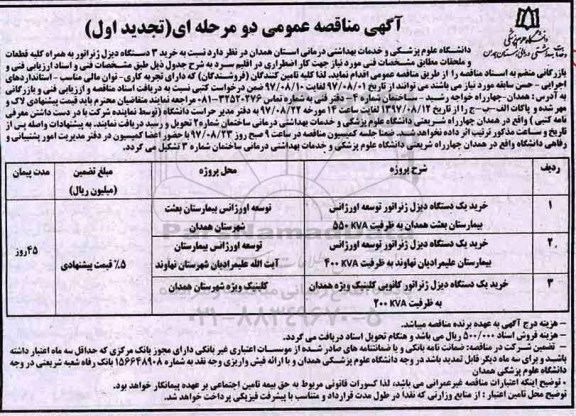 آگهی مناقصه عمومی دو مرحله ای(تجدید اول)
دانشگاه علوم پزشکی و خدمات بهداشتی درمانی استان همدان در نظر دارد نسبت به خرید ۳ دستگاه دیزل ژنراتور به همراه کلیه قطعات
و ملحقات مطابق مشخصات فنی مورد نیاز جهت کار اضطراری در اقلیم سرد به شرح جدول ذیل طبق مشخصات فنی و اسناد ارزیابی فنی و
بازرگانی منضم به اسناد مناقصه را از طریق مناقصه عمومی اقدام نماید. لذا کلیه تامین کنندگان (فروشندگان) که دارای تجربه کاری- توان مالی مناسب - استانداردهای
اجرایی - حسن سابقه مورد نیاز می باشند می توانند از تاریخ ۹۷/۰۸/۰۱ لغایت ۹۷/۰۸/۱۰ ضمن درخواست کتبی نسبت به دریافت اسناد مناقصه و ارزیابی فنی و بازرگانی
به آدرس: همدان- چهارراه خواجه رشید - ساختمان شماره ۴- دفتر فنی به شماره تماس ۳۲۵۲۰۲۷۶-۰۸۱ مراجعه نمایند متقاضیان محترم باید قیمت پیشنهادی لاک و
مهر شده و پاکات الف-ب-ج را از تاریخ ۱۳۹۷/۰۸/۱۲ لغایت ساعت ۱۴ مورخه ۹۷/۰۸/۲۲ به دفتر مدیر حراست دانشگاه (توسط نماینده شرکت با در دست داشتن معرفی
نامه کتبی ) واقع در همدان چهارراه شریعتی دانشگاه علوم پزشکی و خدمات بهداشتی درمانی ساختمان شماره ۲ تحویل و رسید دریافت نمایند. به پیشنهادات واصله پس از
تاریخ و ساعت مذکور ترتیب اثر داده نخواهد شد. ضمنا جلسه کمیسیون مناقصه در ساعت ۹ صبح روز ۹۷/۰۸/۲۳ با حضور اعضا کمیسیون در دفتر مدیریت امور پشتیبانی و
رفاهی دانشگاه واقع در همدان چهارراه شریعتی دانشگاه علوم پزشکی و خدمات بهداشتی درمانی ساختمان شماره ۳ تشکیل می گردد.
ردیف شرح پروژه محل پروژه مبلغ تضمین (میلیون ریال) مدت پیمان
۱ خرید یک دستگاه دیزل ژنراتور توسعه اورژانس توسعه اورژانس بیمارستان بعثت
بیمارستان بعثت همدان به ظرفیت ۵۵۰ KVA شهرستان همدان
۲ خرید یک دستگاه دیزل ژنراتور توسعه اورژانس توسعه اورژانس بیمارستان ۵٪ قیمت پیشنهادی ۴۵ روز
بیمارستان علیمرادیان نهاوند به ظرفیت ۴۰۰ KVA آیت الله علیمرادیان شهرستان نهاوند
۳ خرید یک دستگاه دیزل ژنراتور کانوپی کلینیک ویژه همدان کلینیک ویژه شهرستان همدان
به ظرفیت ۲۰۰ KVA
۰۲۱-۸۸۳۴۹۶۷۰-۵
- هزینه درج آگهی به عهده برنده مناقصه میباشد.
- هزینه فروش اسناد ۵۰۰/۰۰۰ ریال می باشد و هنگام تحویل اسناد دریافت می گردد.
- تضمین شرکت در مناقصه: ضمانت نامه بانکی و یا ضمانتنامه های صادر شده از موسسات اعتباری غیر بانکی دارای مجوز بانک مرکزی که حداقل سه ماه اعتبار داشته
باشید و برای سه ماه دیگر قابل تمدید باشد در وجه دانشگاه علوم پزشکی همدان و با ارائه فیش واریزی وجه نقد به شماره ۱۵۶۶۴۸۹۰۸ بانک رفاه شعبه شریعتی در وجه
دانشگاه علوم پزشکی همدان
- توضیح اینکه اعتبارات مناقصه غیرعمرانی می باشد، لذا کسورات قانونی مربوط به حق بیمه تامین اجتماعی بر عهده پیمانکار خواهد بود.
توضیح محل تامین اعتبار : از منابع وزارتی که نقدا در طول مدت قرارداد و متناسب با پیشرفت فیزیکی پرداخت خواهد شد.